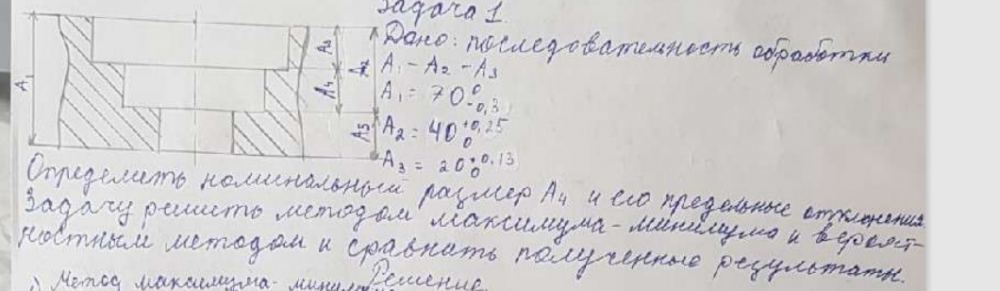 Задача 1.
Дано: последовательность обработки
A₁ - A₂ - A₃
A₁ = 70 0 -0,3
A₂ = 40 +0,25 0
A₃ = 20 +0,13 0
A₁
A₄
A₂
A₃
Определить номинальный размер A₄ и его предельные отклонения.
Задачу решить методом максимума-минимума и вероят-
ностным методом и сравнить полученные результаты.
Решение
) Метод максимума-